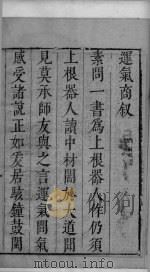 運氣商叙
素問一書為上根器人作仍須
上根器人讀中材大道聞
見莫承師友與之言運氣聞氣
感受諸說正如爰居駭鐘鼓聞